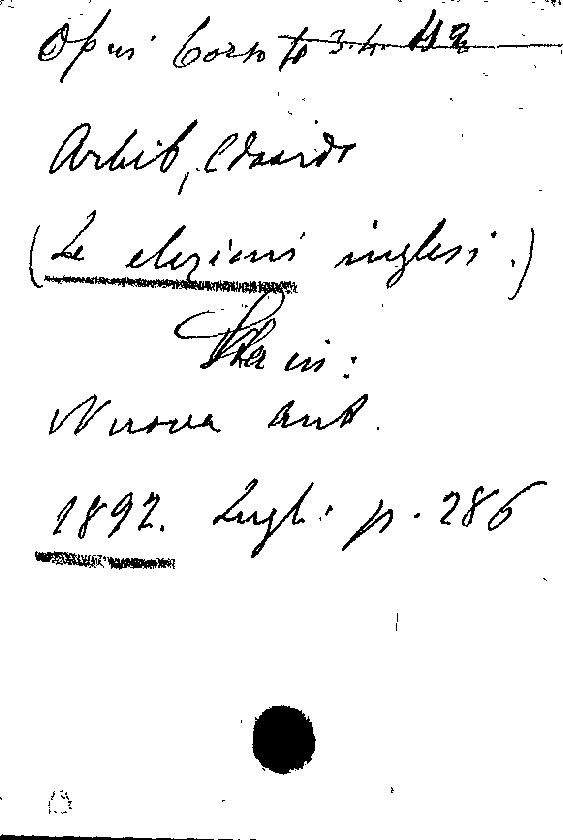 Opus Corso
Arbib, Edoardo
(Le elezioni inglesi.)
Sta in:
Nuova Ant.
1892. Lugl: p. 286